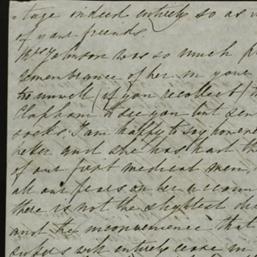 tage indeed entirely so as
of your friends.
Mrs Johnson was so much
remembrance of her in your
(if you recollect)
Clapham to see you but
socks. I am happy to say
better and she has had the
of our first medical men,
all our fears on her account
there is not the slightest
and the inconvenience that
suffers will entirely cease in